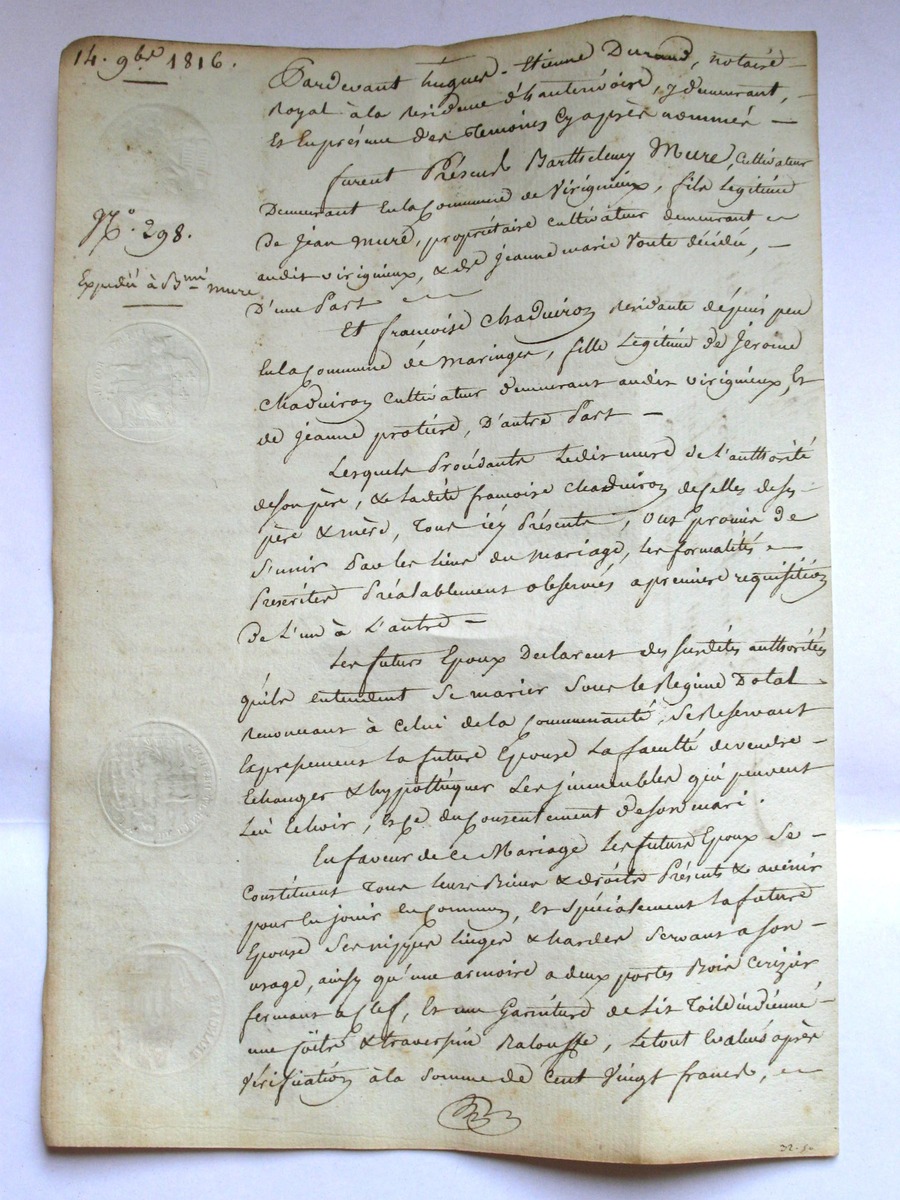 14. 9bre 1816.
Pardevant hugues-Etienne Durand, notaire
Royal à la residence d'hauterivoire, y demeurant,
et En présence des temoins Cy après nommés
furent Présents Barthelemy Mure, Cultivateur
Demeurant En la Commune de Virignieux, fils legitime
De Jean Mure, propriétaire cultivateur demeurant
audit virignieux, & de Jeanne marie Voute décédée,
D'une Part
No. 298.
Expédié à Bmi Mure
Et francoise Chaduiron residante depuis peu
En la Commune de maringes, fille Légitime de Jérome
Chaduiron cultivateur demeurant audit virignieux, Et
de Jeanne protiere, D'autre Part
Lesquels Procédants Ledit mure de l'authorité
de son père, & La dite francoise Chaduiron de celles de ses
père & mère, Tous icy Présents, Ont promis de
s'unir Par les Liens du mariage, les formalités
Prescrites Préalablement observées a premiere requisition
de L'un à L'autre
Les futurs Epoux Declarent des susdites authorités
qu'ils entendent Se marier Sous le Regime Dotal
Renoncant à Celui de la Communauté, Se Reservant
Expressement la future Epouse La faculté de vendre
Echanger & hypothéquer Les immeubles qui peuvent
Lui Echoir, du Consentement de son mari.
En faveur de Ce Mariage Les futurs Epoux Se
Constituent Tous leurs Biens & droits Présents & avenir
pour En jouir En Commun, Et Spécialement la future
Epouse Ses nippes linges & hardes Servant a Son
usage, ainsy qu'une armoire a deux portes Bois Cerizier
fermant a Clef, Et une Garniture de Lit Toile indienne
une Coitre & traversin Balouffe, Le tout Evalué après
Vérification à la Somme de Cent Vingt francs,